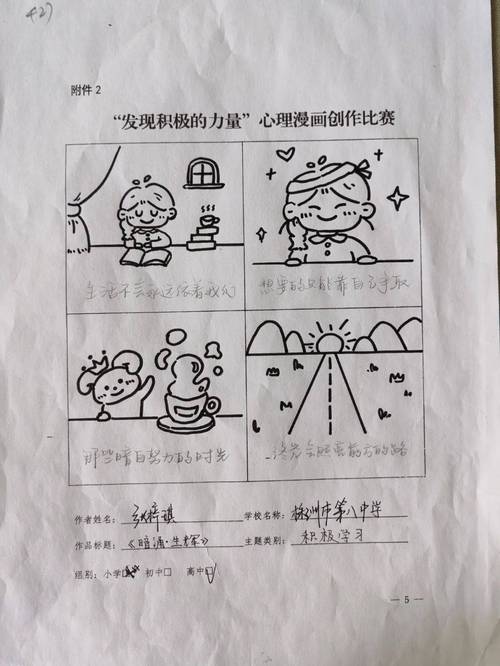 427
附件2
“发现积极的力量”心理漫画创作比赛
生活不会永远依着我们
想要的只能靠自己争取
那些暗自努力的时光
终会照亮前方的路
作者姓名：张梓琪
学校名称：株洲市第八中学
作品标题：《暗涌·生辉》
主题类别：积极学习
组别：小学□ 初中□ 高中☑
— 5 —